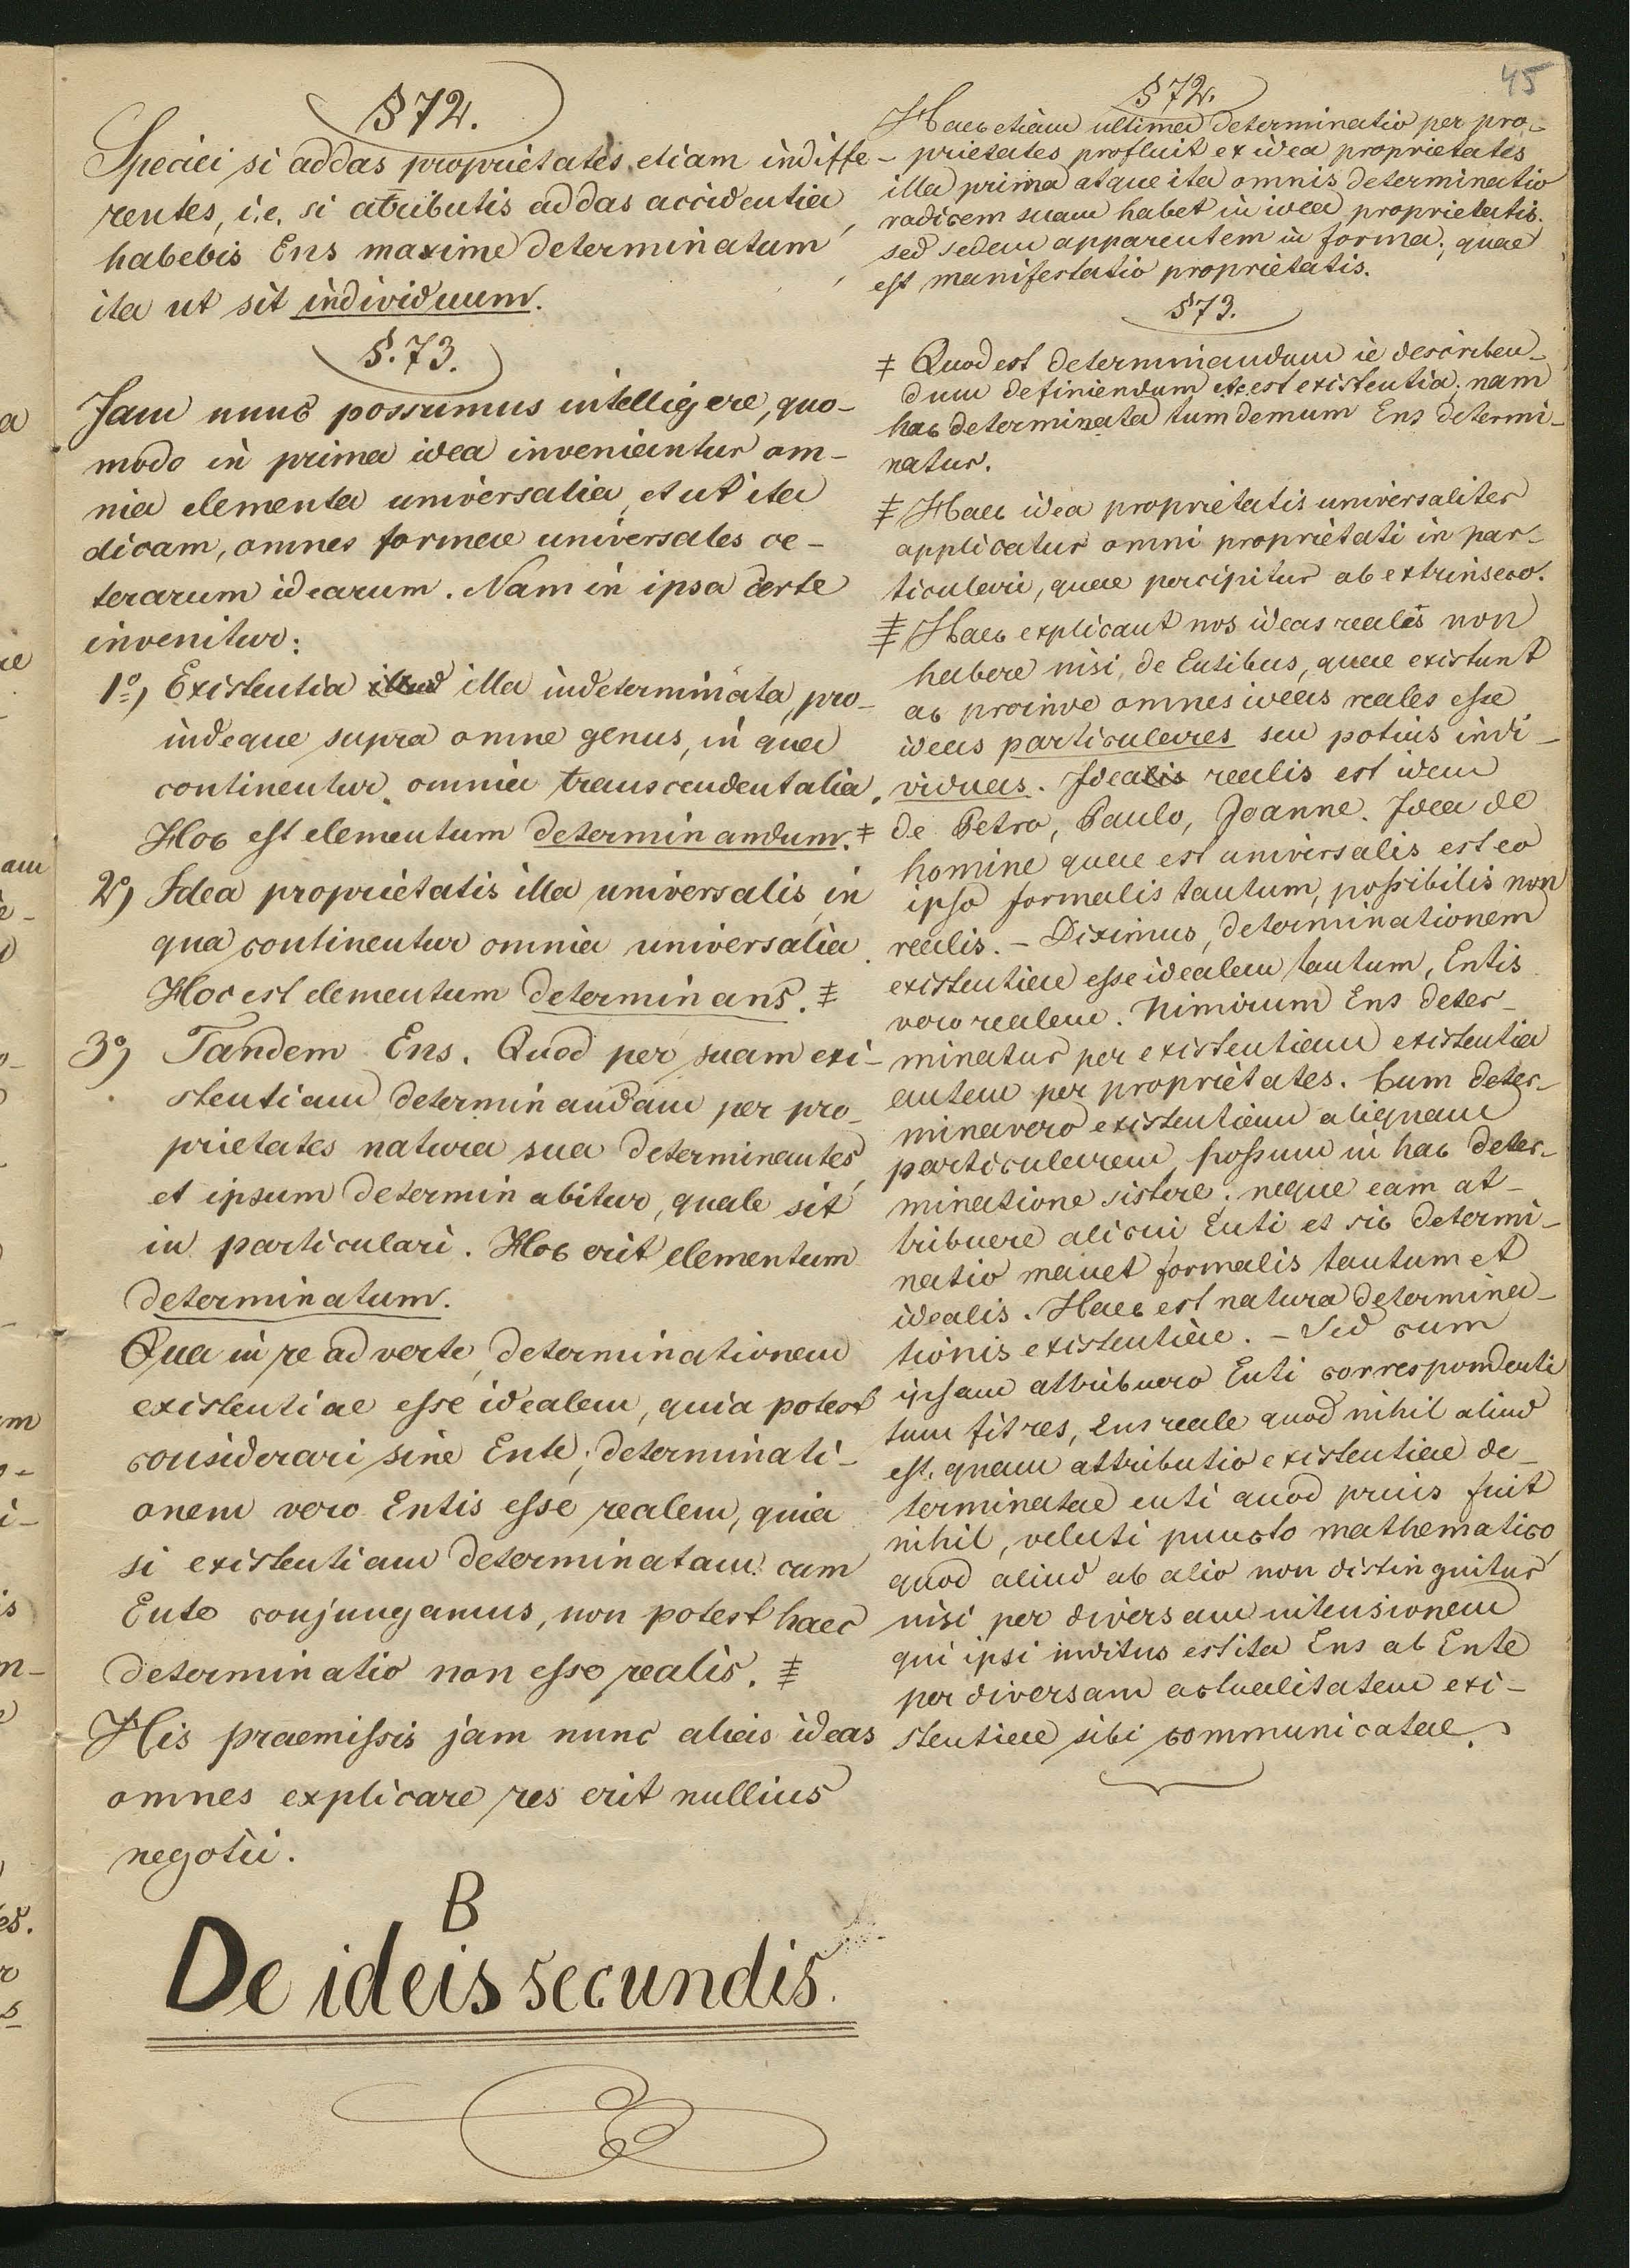 45
§ 72.
Speciei si addas proprietates etiam indiffe-
rentes, i.e. si atributis addas accidentia,
habebis Ens maxime determinatum,
ita ut sit individuum.
§. 73.
Jam nunc possumus intelligere, quo-
modo in prima idea inveniantur om-
nia elementa universalia, et ut ita
dicam, omnes formae universales ce-
terarum idearum. Nam in ipsa certe
invenitur:
1º, Existentia illa indeterminata, pro-
indeque supra omne genus, in qua
continentur omnia transcendentalia.
Hoc est elementum determinandum. ‡
2º, Idea proprietatis illa universalis, in
qua continentur omnia universalia.
Hoc est elementum determinans. ‡
3º, Tandem Ens. Quod per suam exi-
stentiam determinandam per pro-
prietates natura sua determinantes,
et ipsum determinabitur, quale sit
in particulari. Hoc erit elementum
determinatum.
Qua in re adverte, determinationem
existentiae esse idealem, quia potest
considerari sine Ente; determinati-
onem vero Entis esse realem, quia
si existentiam determinatam cum
Ente conjungamus, non potest haec
determinatio non esse realis. ‡
His praemissis jam nunc alias ideas
omnes explicare res erit nullius
negotii.
B
De ideis secundis.
§ 72.
Haec etiam ultima determinatio per pro-
prietates profluit ex idea proprietates
illa prima atque ita omnis determinatio
radicem suam habet in idea proprietatis.
sed sedem apparentem in forma; quae
est manifestatio proprietatis.
§ 73.
‡ Quod est determinandum ie describen-
dum definiendum etc est existentia; nam
hac determinata tum demum Ens determi-
natur.
‡ Haec idea proprietatis universaliter
applicatur omni proprietati in par-
ticulari, quae percipitur ab extrinseco.
‡ Haec explicant nos ideas reales non
habere nisi de Entibus, quae existunt
ac proinde omnes ideas reales esse
ideas particulares seu potius indi-
viduas. Idea realis est idem
de Petro, Paulo, Joanne. Idea de
homine quae est universalis est eo
ipso formalis tantum, possibilis non
realis. - Diximus, determinationem
existentiae esse idealem tantum, Entis
vero realem. Nimirum Ens deter-
minatur per existentiam existentia
autem per proprietates. Cum deter-
minavero existentiam aliquam
particularem, possum in hac deter-
minatione sistere, neque eam at-
tribuere alicui Enti et sic determi-
natio manet formalis tantum et
idealis. Haec est natura determina-
tionis existentiae. - Sed cum
ipsam attribuero Enti correspondenti
tum fit res, ens reale quod nihil aliud
est, quam attributio existentiae de-
terminatae enti quod prius fuit
nihil, veluti puncto mathematico,
quod aliud ab alio non distinguitur
nisi per diversam intensionem
qui ipsi inditus est ita Ens ab Ente
per diversam actualitatem exi-
stentiae sibi communicatae.